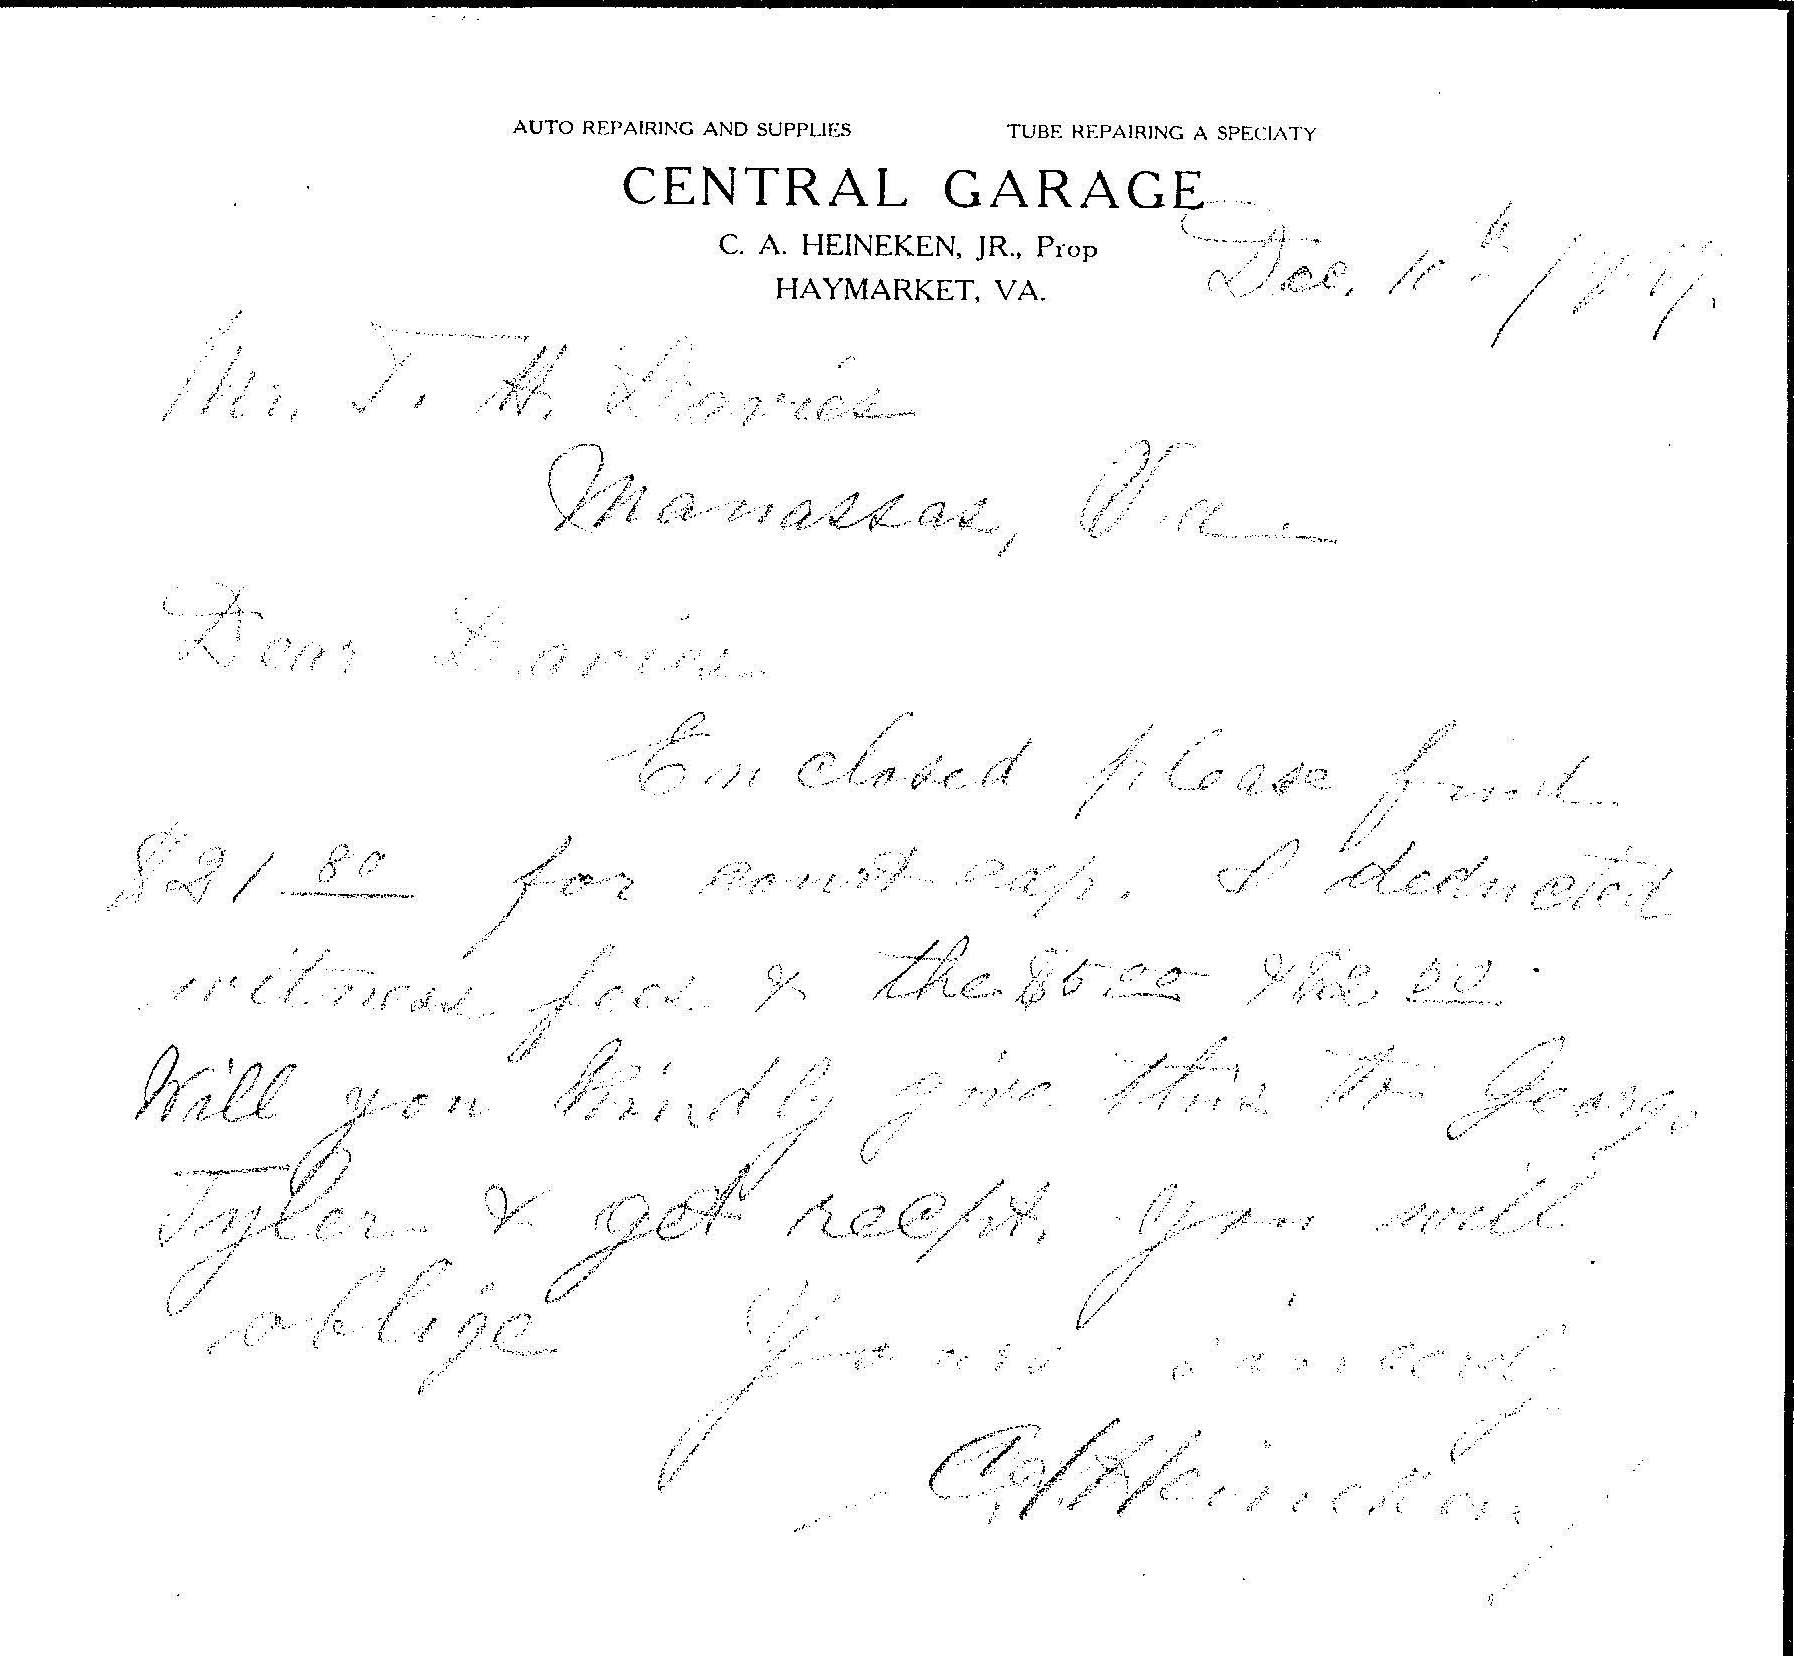 AUTO REPAIRING AND SUPPLIES TUBE REPAIRING A SPECIATY
CENTRAL GARAGE
C. A. HEINEKEN, JR., Prop
HAYMARKET, VA.
Dec. 10th
Mr. T. H. Davies
Manassas, Va
Dear Davies
Enclosed please find
$21 80 for court exp. I deducted
witness fees & the $5 00 & $2 00.
Will you kindly give this to George
Tyler & get recpt. You will
oblige Yours sincerely
C.A. Heineken